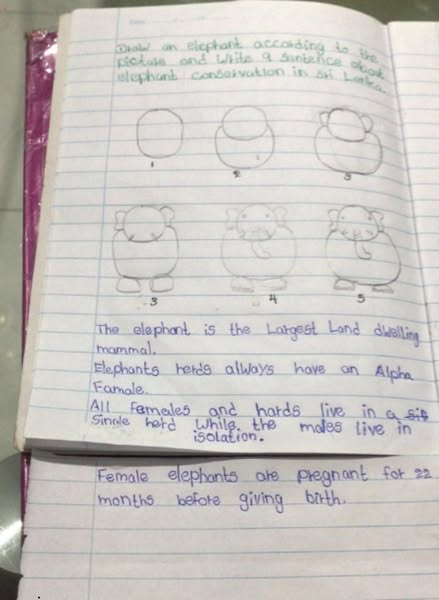 Draw an elephant according to the
picture and write a sentence about
elephant conservation in Sri Lanka
1 2 3
3 4 5
The elephant is the Largest Land dwelling
mammal.
Elephants herds always have an Alpha
Famale.
All females and hards live in a
Single herd While the males live in
isolation.
Female elephants are pregnant for 22
months before giving birth.